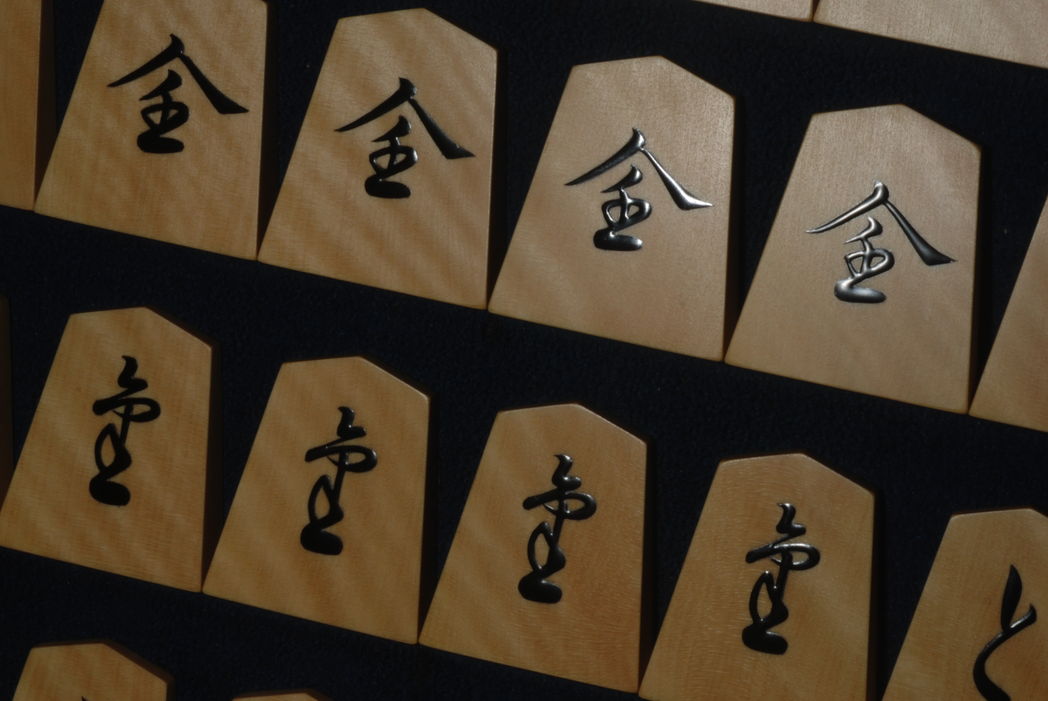 金 金 金 金
金 金 金 金 と